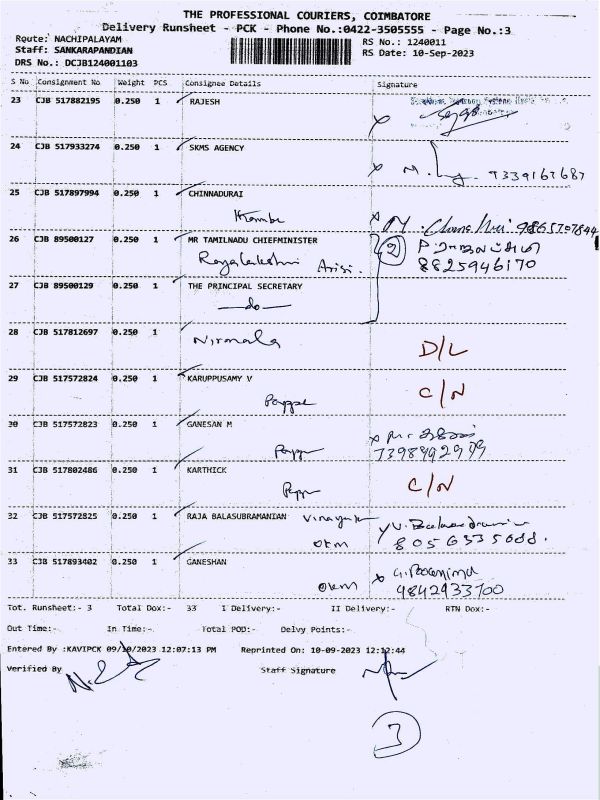 THE PROFESSIONAL COURIERS, COIMBATORE
Delivery Runsheet - PCK - Phone No.:0422-3505555 - Page No.:3
Route: NACHIPALAYAM
RS No.: 1240011
Staff: SANKARAPANDIAN
RS Date: 10-Sep-2023
DRS No.: DCJB124001103
S No Consignment No Weight PCS Consignee Details Signature
23 CJB 517882195 0.250 1 RAJESH
24 CJB 517933274 0.250 1 SKMS AGENCY
9339167687
25 CJB 517897994 0.250 1 CHINNADURAI
26 CJB 89500127 0.250 1 MR TAMILNADU CHIEFMINISTER
2
Rajalakshmi Arisi.
8825946170
27 CJB 89500129 0.250 1 THE PRINCIPAL SECRETARY
—do—
28 CJB 517812697 0.250 1
Nirmala D/L
29 CJB 517572824 0.250 1 KARUPPUSAMY V
C/N
30 CJB 517572823 0.250 1 GANESAN M
7398492979
31 CJB 517802486 0.250 1 KARTHICK
C/N
32 CJB 517572825 0.250 1 RAJA BALASUBRAMANIAN Vinayak
OKM 8056335688.
33 CJB 517893402 0.250 1 GANESHAN
G. Poornima
OKM 9842933700
Tot. Runsheet:- 3 Total Dox:- 33 I Delivery:- II Delivery:- RTN Dox:-
Out Time:- In Time:- Total POD:- Delvy Points:-
Entered By :KAVIPCK 09/10/2023 12:07:13 PM Reprinted On: 10-09-2023 12:12:44
Verified By Staff Signature
3